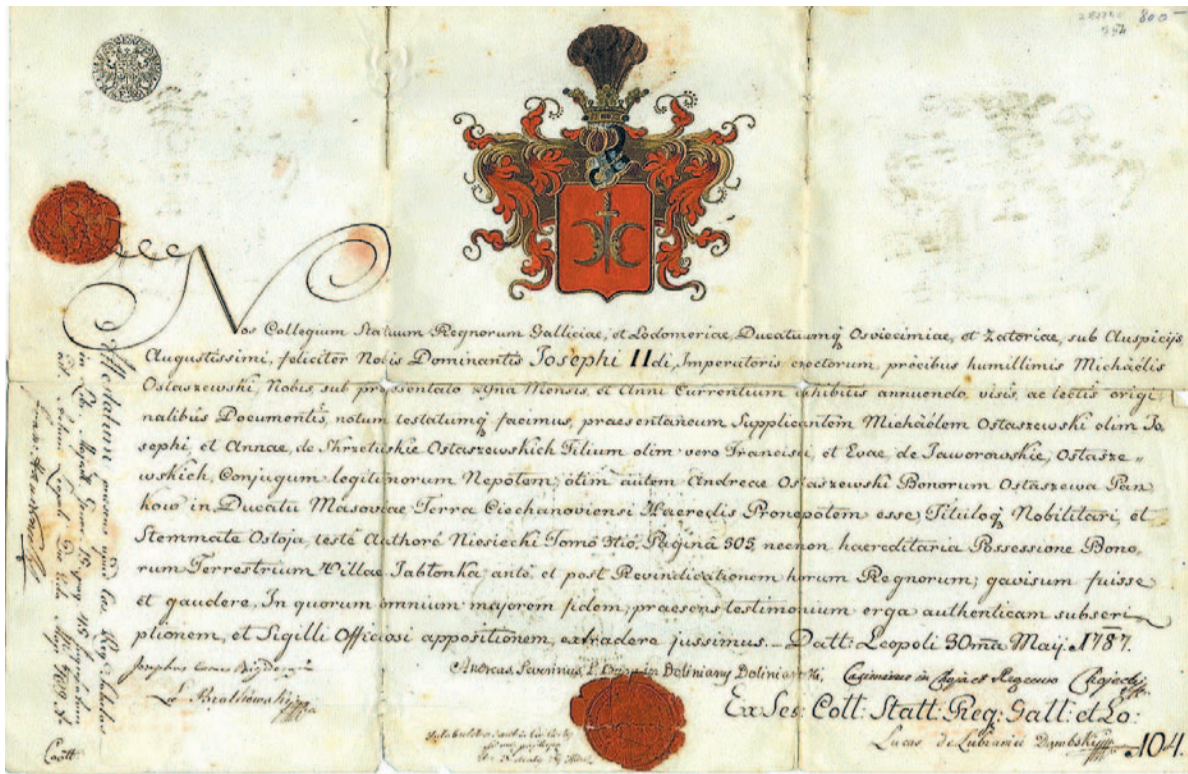 800
Nos Collegium Statuum Regnorum Galliciae, et Lodomeriae Ducatuumq Osviecimiae, et Zatoriae, sub Auspicijs
Augustissimi, feliciter Nobis Dominantis Josephi IIdi, Imperatoris erectorum, precibus humillimis Michaëlis
Ostaszewski, Nobis, sub praesentato Mensis, et Anni Currentium exhibitis annuendo, visis, ac lectis origi
nalibus Documentis, notum testatumq facimus, praesentaneum Supplicantem Michaëlem Ostaszewski olim Jo
sephi, et Annae, de Skrzetuskie Ostaszewskich Filium olim vero Francisci, et Evae, de Jaworowskie, Ostasze„
wskich Conjugum legitimorum Nepotem; olim autem Andreae Ostaszewski Bonorum Ostaszewa Pan
kow in Ducatu Masoviae Terra Ciechanoviensi Haeredis Pronepotem esse, Tituloq Nobilitari, et
Stemmate Ostoja, teste Authore Niesiecki Tomo 3tio, Pagina 505, necnon haereditaria Possessione Bono„
rum Terrestrium Villae Jabłonka, ante et post Revindicationem horum Regnorum; gavisum fuisse
et gaudere, In quorum omnium majorem fidem, praesens testimonium erga authenticam subscri„
ptionem, et Sigilli Officiosi appositionem, extradere jussimus. Datt: Leopoli 30ma Maij 1787.
Josephus Comes
Andreas Severinus in Doliniany
Casimirus in
Ex Ses: Coll: Statt: Reg: Gall: et Lo:
Lucas de Lubraniec Dąmbski
104.